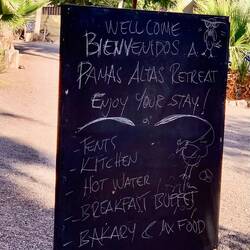 WELLCOME
BIENVENIDOS A
PAMAS ALTAS RETREAT
ENJOY YOUR STAY!
- TENTS
- KITCHEN
- HOT WATER!
- BREAKFAST BUFFET
- BAKARY & MX FOOD